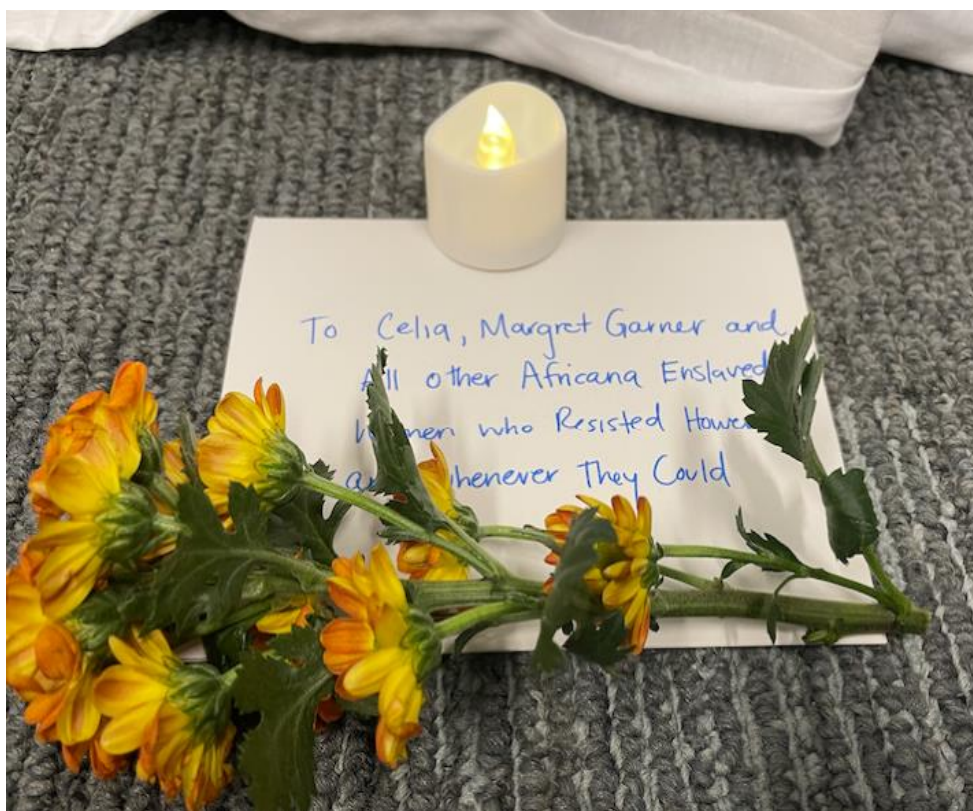 To Celia, Margret Garner and
All other Africana Enslaved
Women who Resisted
whenever They Could